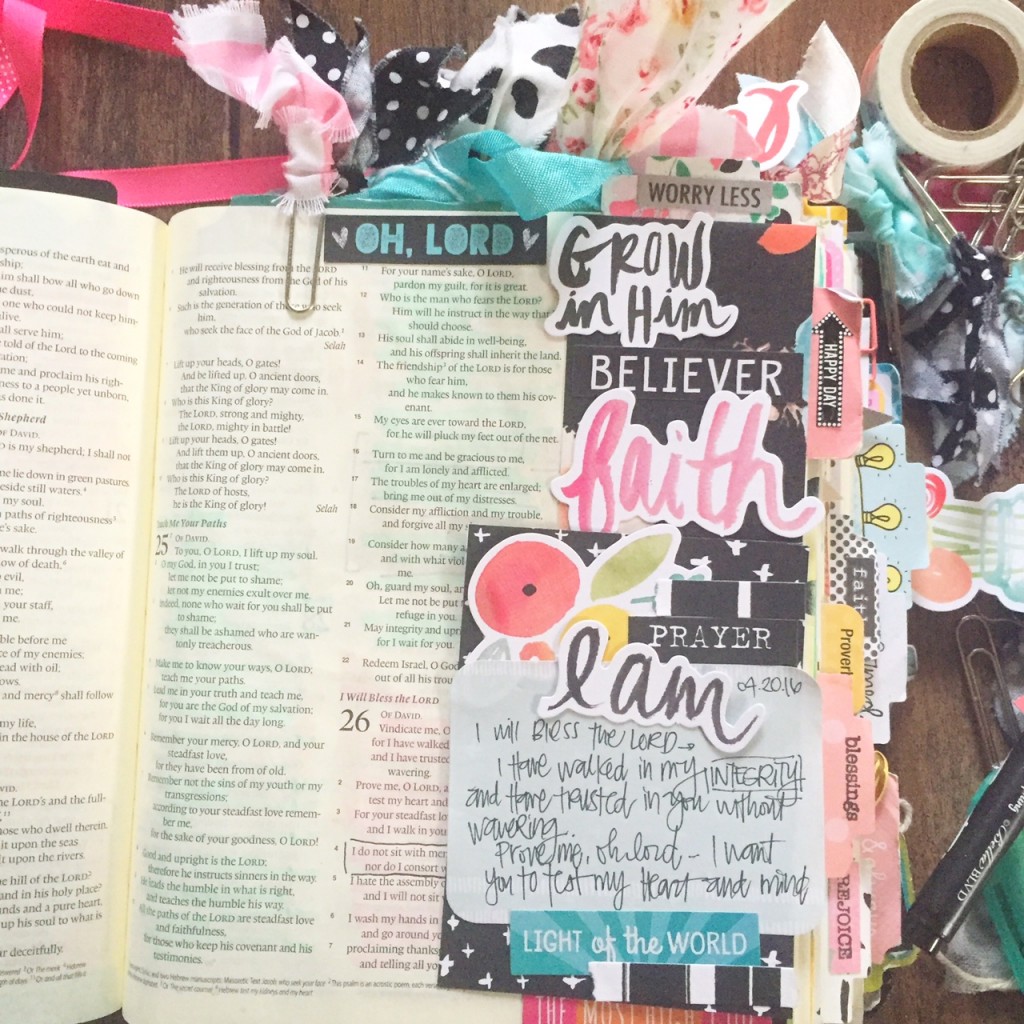 sperous of the earth eat and
ship;
him shall bow all who go down
the dust,
one who could not keep him-
alive.
shall serve him;
told of the Lord to the coming
ration;
me and proclaim his righ-
ness to a people yet unborn,
as done it.
Shepherd
OF DAVID.
is my shepherd; I shall not
me lie down in green pastures.
beside still waters.
my soul.
paths of righteousness
's sake.
walk through the valley of
ow of death,
evil,
me;
your staff,
me.
ble before me
ce of my enemies;
ead with oil;
ows.
and mercy shall follow
my life,
in the house of the LORD
VID.
the LORD's and the full-
those who dwell therein,
it upon the seas
upon the rivers.
he hill of the LORD?
and in his holy place?
nds and a pure heart,
up his soul to what is
r deceitfully.
OH, LORD
He will receive blessing from the LORD
and righteousness from the God of his
salvation.
Such is the generation of those who seek
him,
who seek the face of the God of Jacob.
Selah
Lift up your heads, O gates!
And be lifted up, O ancient doors,
that the King of glory may come in.
Who is this King of glory?
The LORD, strong and mighty,
the LORD, mighty in battle!
Lift up your heads, O gates!
And lift them up, O ancient doors,
that the King of glory may come in.
Who is this King of glory?
The LORD of hosts,
he is the King of glory!
Selah
Teach Me Your Paths
25 OF DAVID.
To you, O LORD, I lift up my soul.
O my God, in you I trust;
let me not be put to shame;
let not my enemies exult over me.
Indeed, none who wait for you shall be put
to shame;
they shall be ashamed who are wan-
tonly treacherous.
Make me to know your ways, O LORD;
teach me your paths.
Lead me in your truth and teach me,
for you are the God of my salvation;
for you I wait all the day long.
Remember your mercy, O LORD, and your
steadfast love,
for they have been from of old.
Remember not the sins of my youth or my
transgressions;
according to your steadfast love remem-
ber me,
for the sake of your goodness, O LORD!
Good and upright is the LORD;
therefore he instructs sinners in the way.
He leads the humble in what is right,
and teaches the humble his way.
All the paths of the LORD are steadfast love
and faithfulness,
for those who keep his covenant and his
testimonies.
11 For your name's sake, O LORD,
pardon my guilt, for it is great.
12 Who is the man who fears the LORD?
Him will he instruct in the way that
should choose.
13 His soul shall abide in well-being,
and his offspring shall inherit the land.
14 The friendship of the LORD is for those
who fear him,
and he makes known to them his cov-
enant.
15 My eyes are ever toward the LORD,
for he will pluck my feet out of the net.
16 Turn to me and be gracious to me,
for I am lonely and afflicted.
17 The troubles of my heart are enlarged;
bring me out of my distresses.
18 Consider my affliction and my trouble,
and forgive all my
19 Consider how many
and with what viol
me.
20 Oh, guard my soul,
Let me not be put
refuge in you.
21 May integrity and upri
for I wait for you.
22 Redeem Israel, O Go
out of all his trou
I Will Bless the LORD
26 OF DAVID.
Vindicate me, O
for I have walked
and I have trusted
wavering.
2 Prove me, O LORD, a
test my heart and
3 For your steadfast
and I walk in you
4 I do not sit with men
nor do I consort
5 I hate the assembly
and I will not si
6 I wash my hands in
and go around yo
7 proclaiming thanks
and telling all yo
WORRY LESS
GROW
in Him
BELIEVER
faith
HAPPY DAY
PRAYER
I am
04.20.16
I will BLESS the LORD→
I Have walked in my INTEGRITY
and Have trusted in you without
wavering.
Prove me, oh Lord - I want
you to test my Heart and mind
LIGHT of the WORLD
THE MOST HIGH
faith
Proverb
blessings
REJOICE
BLVD